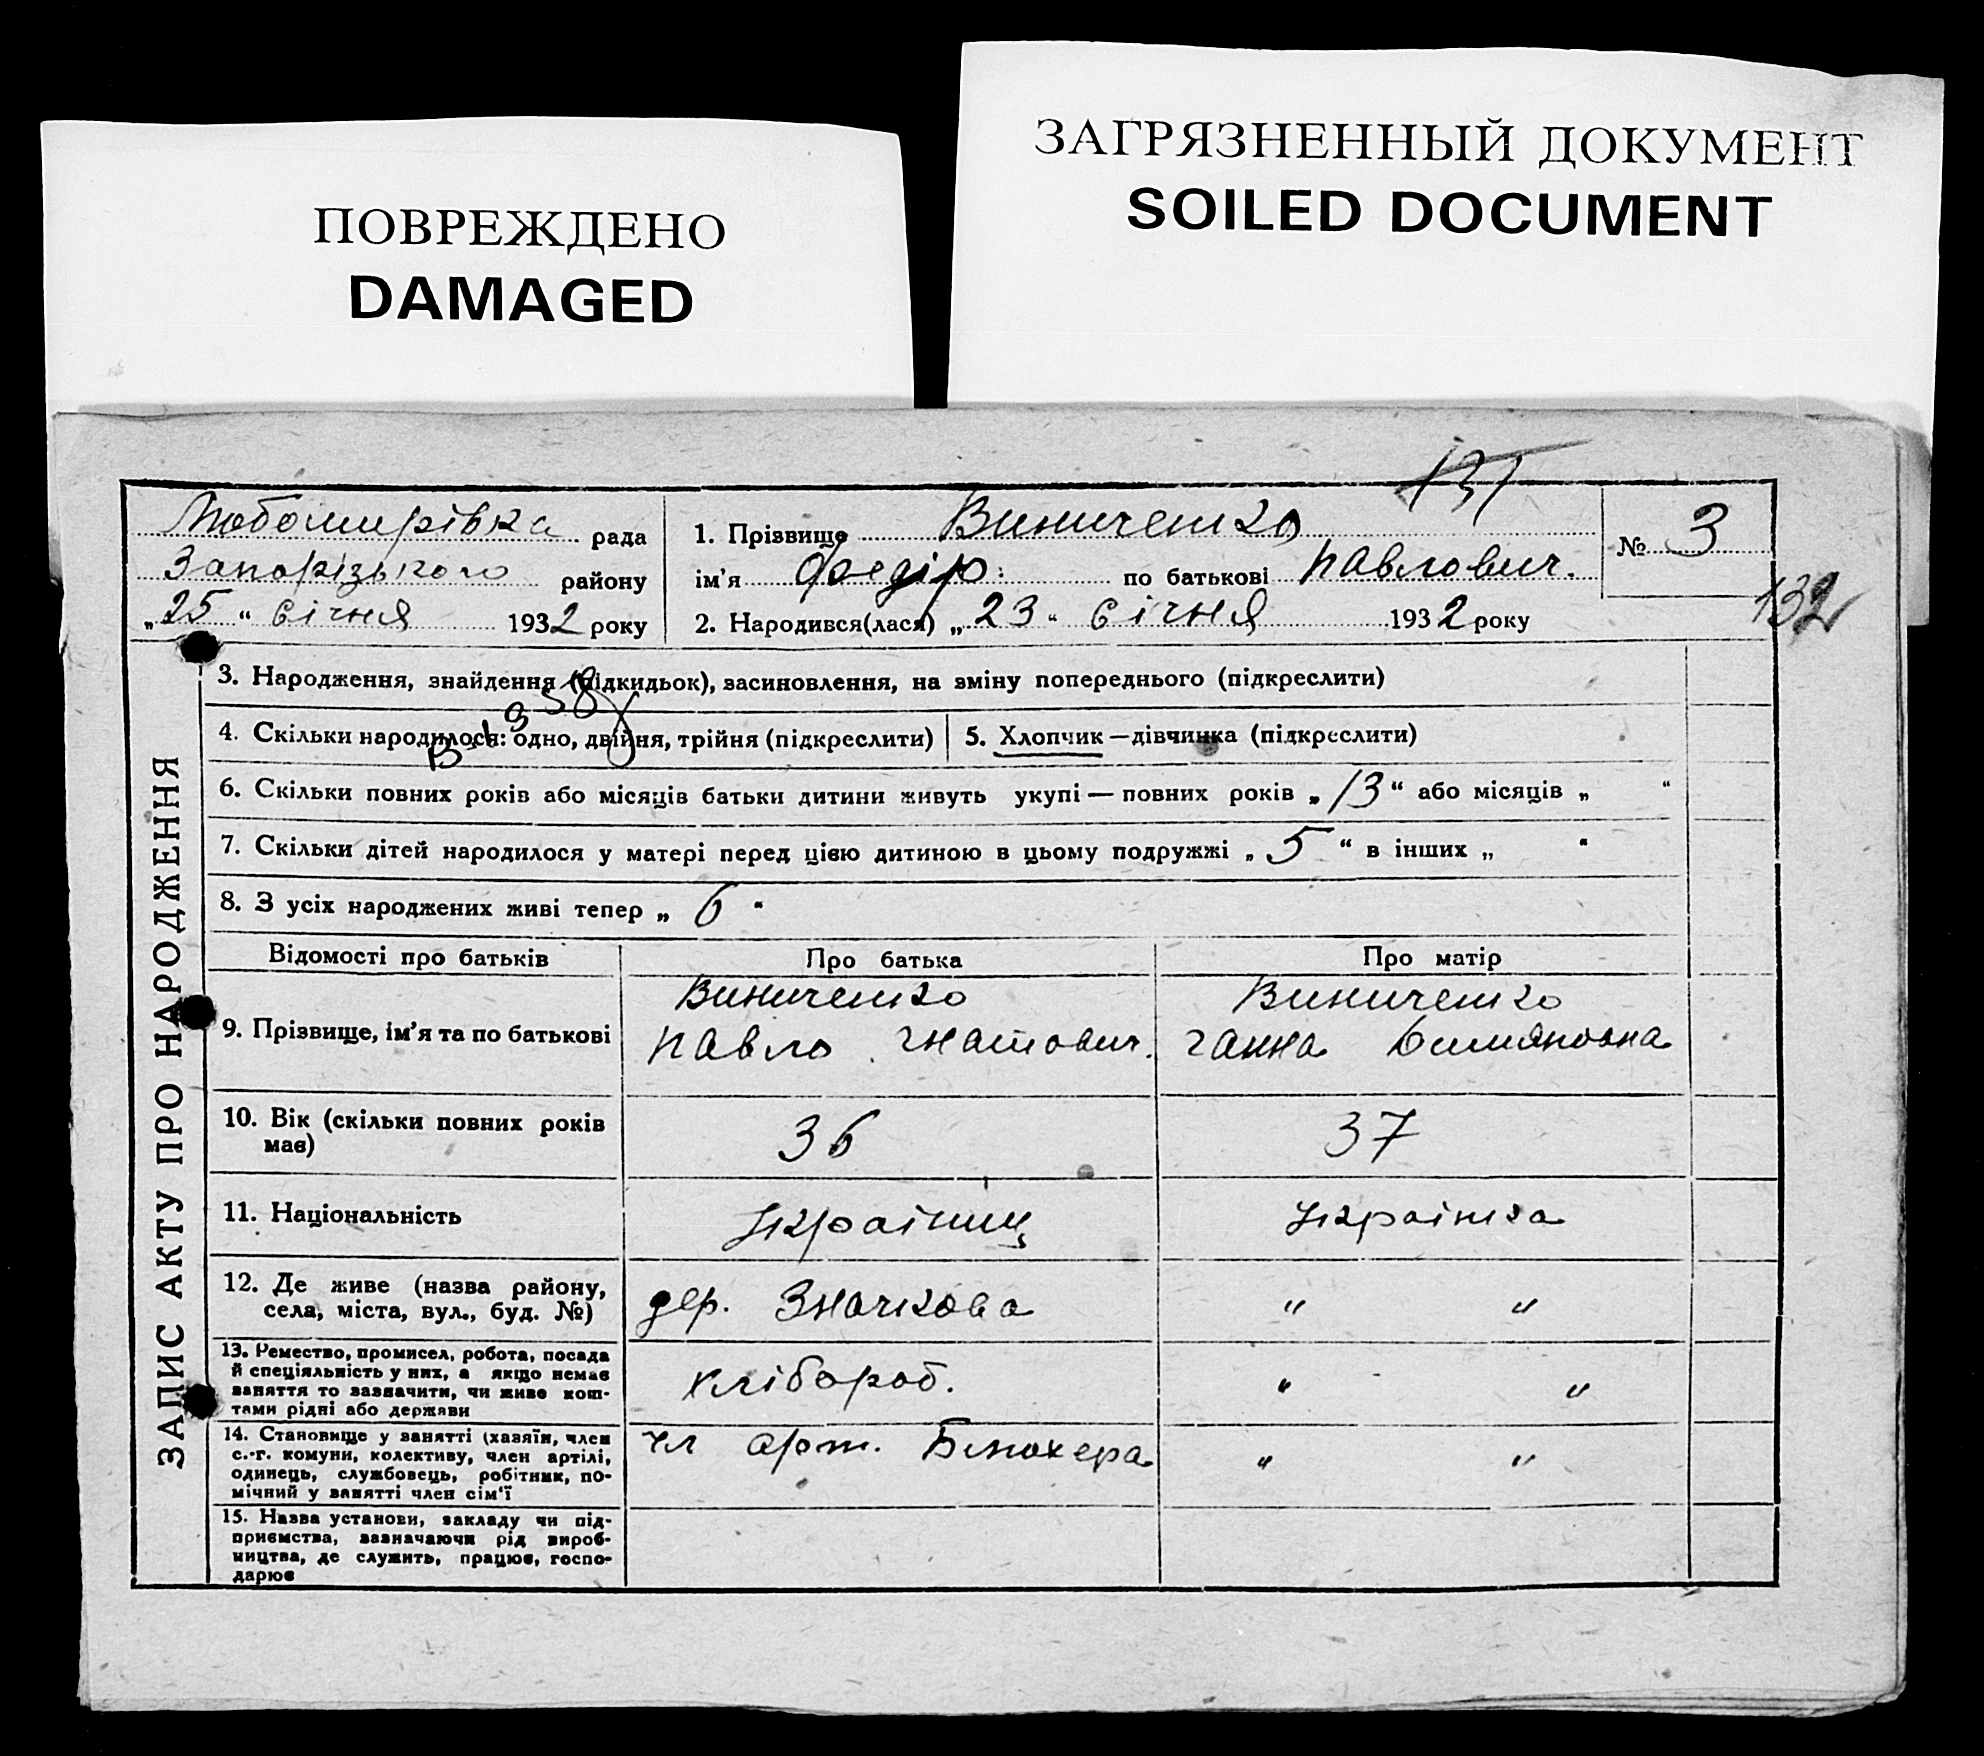 ПОВРЕЖДЕНО
DAMAGED
ЗАГРЯЗНЕННЫЙ ДОКУМЕНТ
SOILED DOCUMENT
131
132
Любомирівка рада
Запорізького району
„25“ січня 1932 року
1. Прізвище Виниченко
ім’я Федір по батькові Павлович.
2. Народився(лася) „23“ січня 1932 року
№ 3
ЗАПИС АКТУ ПРО НАРОДЖЕННЯ
3. Народження, знайдення (підкидьок), засиновлення, на зміну попереднього (підкреслити)
4. Скільки народилося: одно, двійня, трійня (підкреслити)
5. Хлопчик—дівчинка (підкреслити)
6. Скільки повних років або місяців батьки дитини живуть укупі — повних років „13“ або місяців „ “
7. Скільки дітей народилося у матері перед цією дитиною в цьому подружжі „5“ в інших „ “
8. З усіх народжених живі тепер „6“
Відомості про батьків
Про батька
Про матір
9. Прізвище, ім’я та по батькові
Виниченко
Павло Гнатович.
Виниченко
Ганна
10. Вік (скільки повних років
має)
36
37
11. Національність
Українец
Українка
12. Де живе (назва району,
села, міста, вул., буд. №)
дер. Значкова
" "
13. Ремество, промисел, робота, посада
й спеціяльність у них, а якщо немає
заняття то зазначити, чи живе кош-
тами рідні або держави
Хлібороб.
" "
14. Становище у занятті (хазяїн, член
с.-г. комуни, колективу, член артілі,
одинець, службовець, робітник, по-
мічний у занятті член сім'ї
чл арт. Блюхера
" "
15. Назва установи, закладу чи під-
приємства, зазначаючи рід вироб-
ництва, де служить, працює, госпо-
дарює